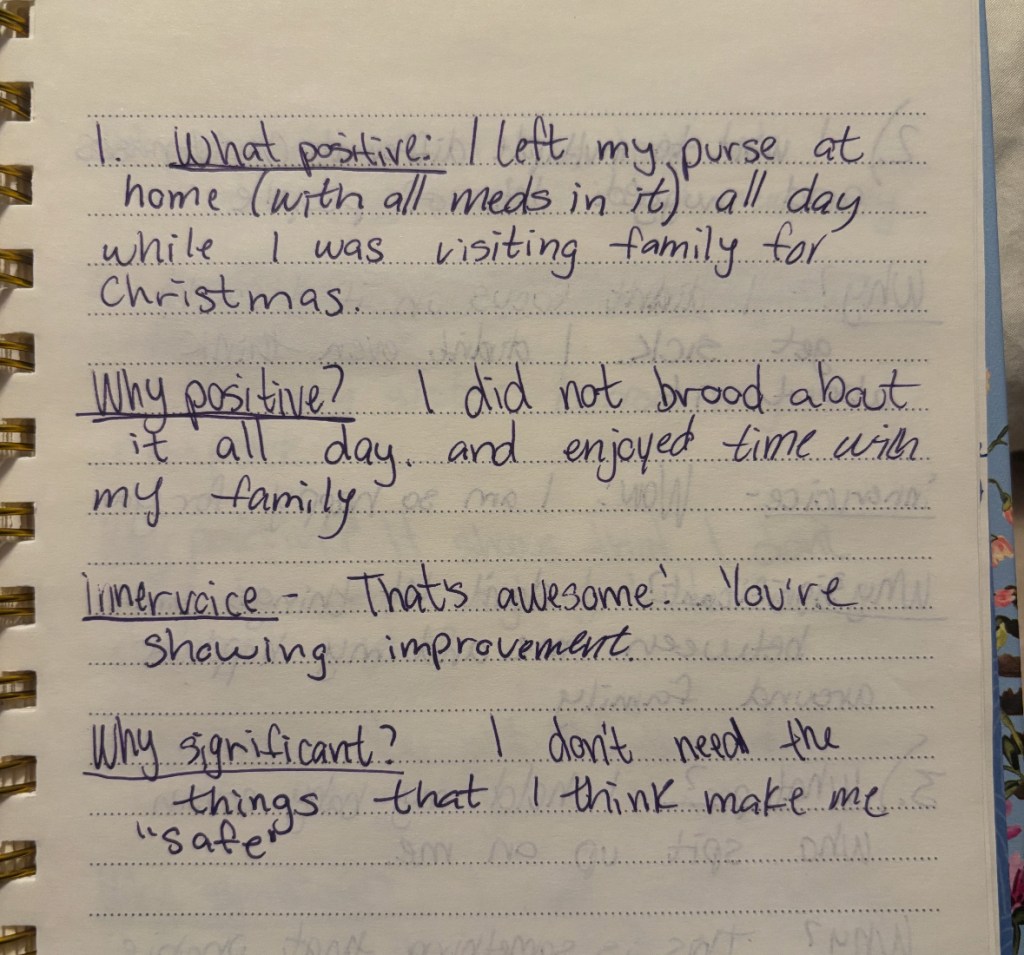 1. What positive: I left my purse at
home (with all meds in it) all day
while I was visiting family for
Christmas.
Why positive? I did not brood about
it all day. and enjoyed time with
my family
innervoice - That's awesome! You're
showing improvement.
Why significant? I don't need the
things that I think make me
"safe"